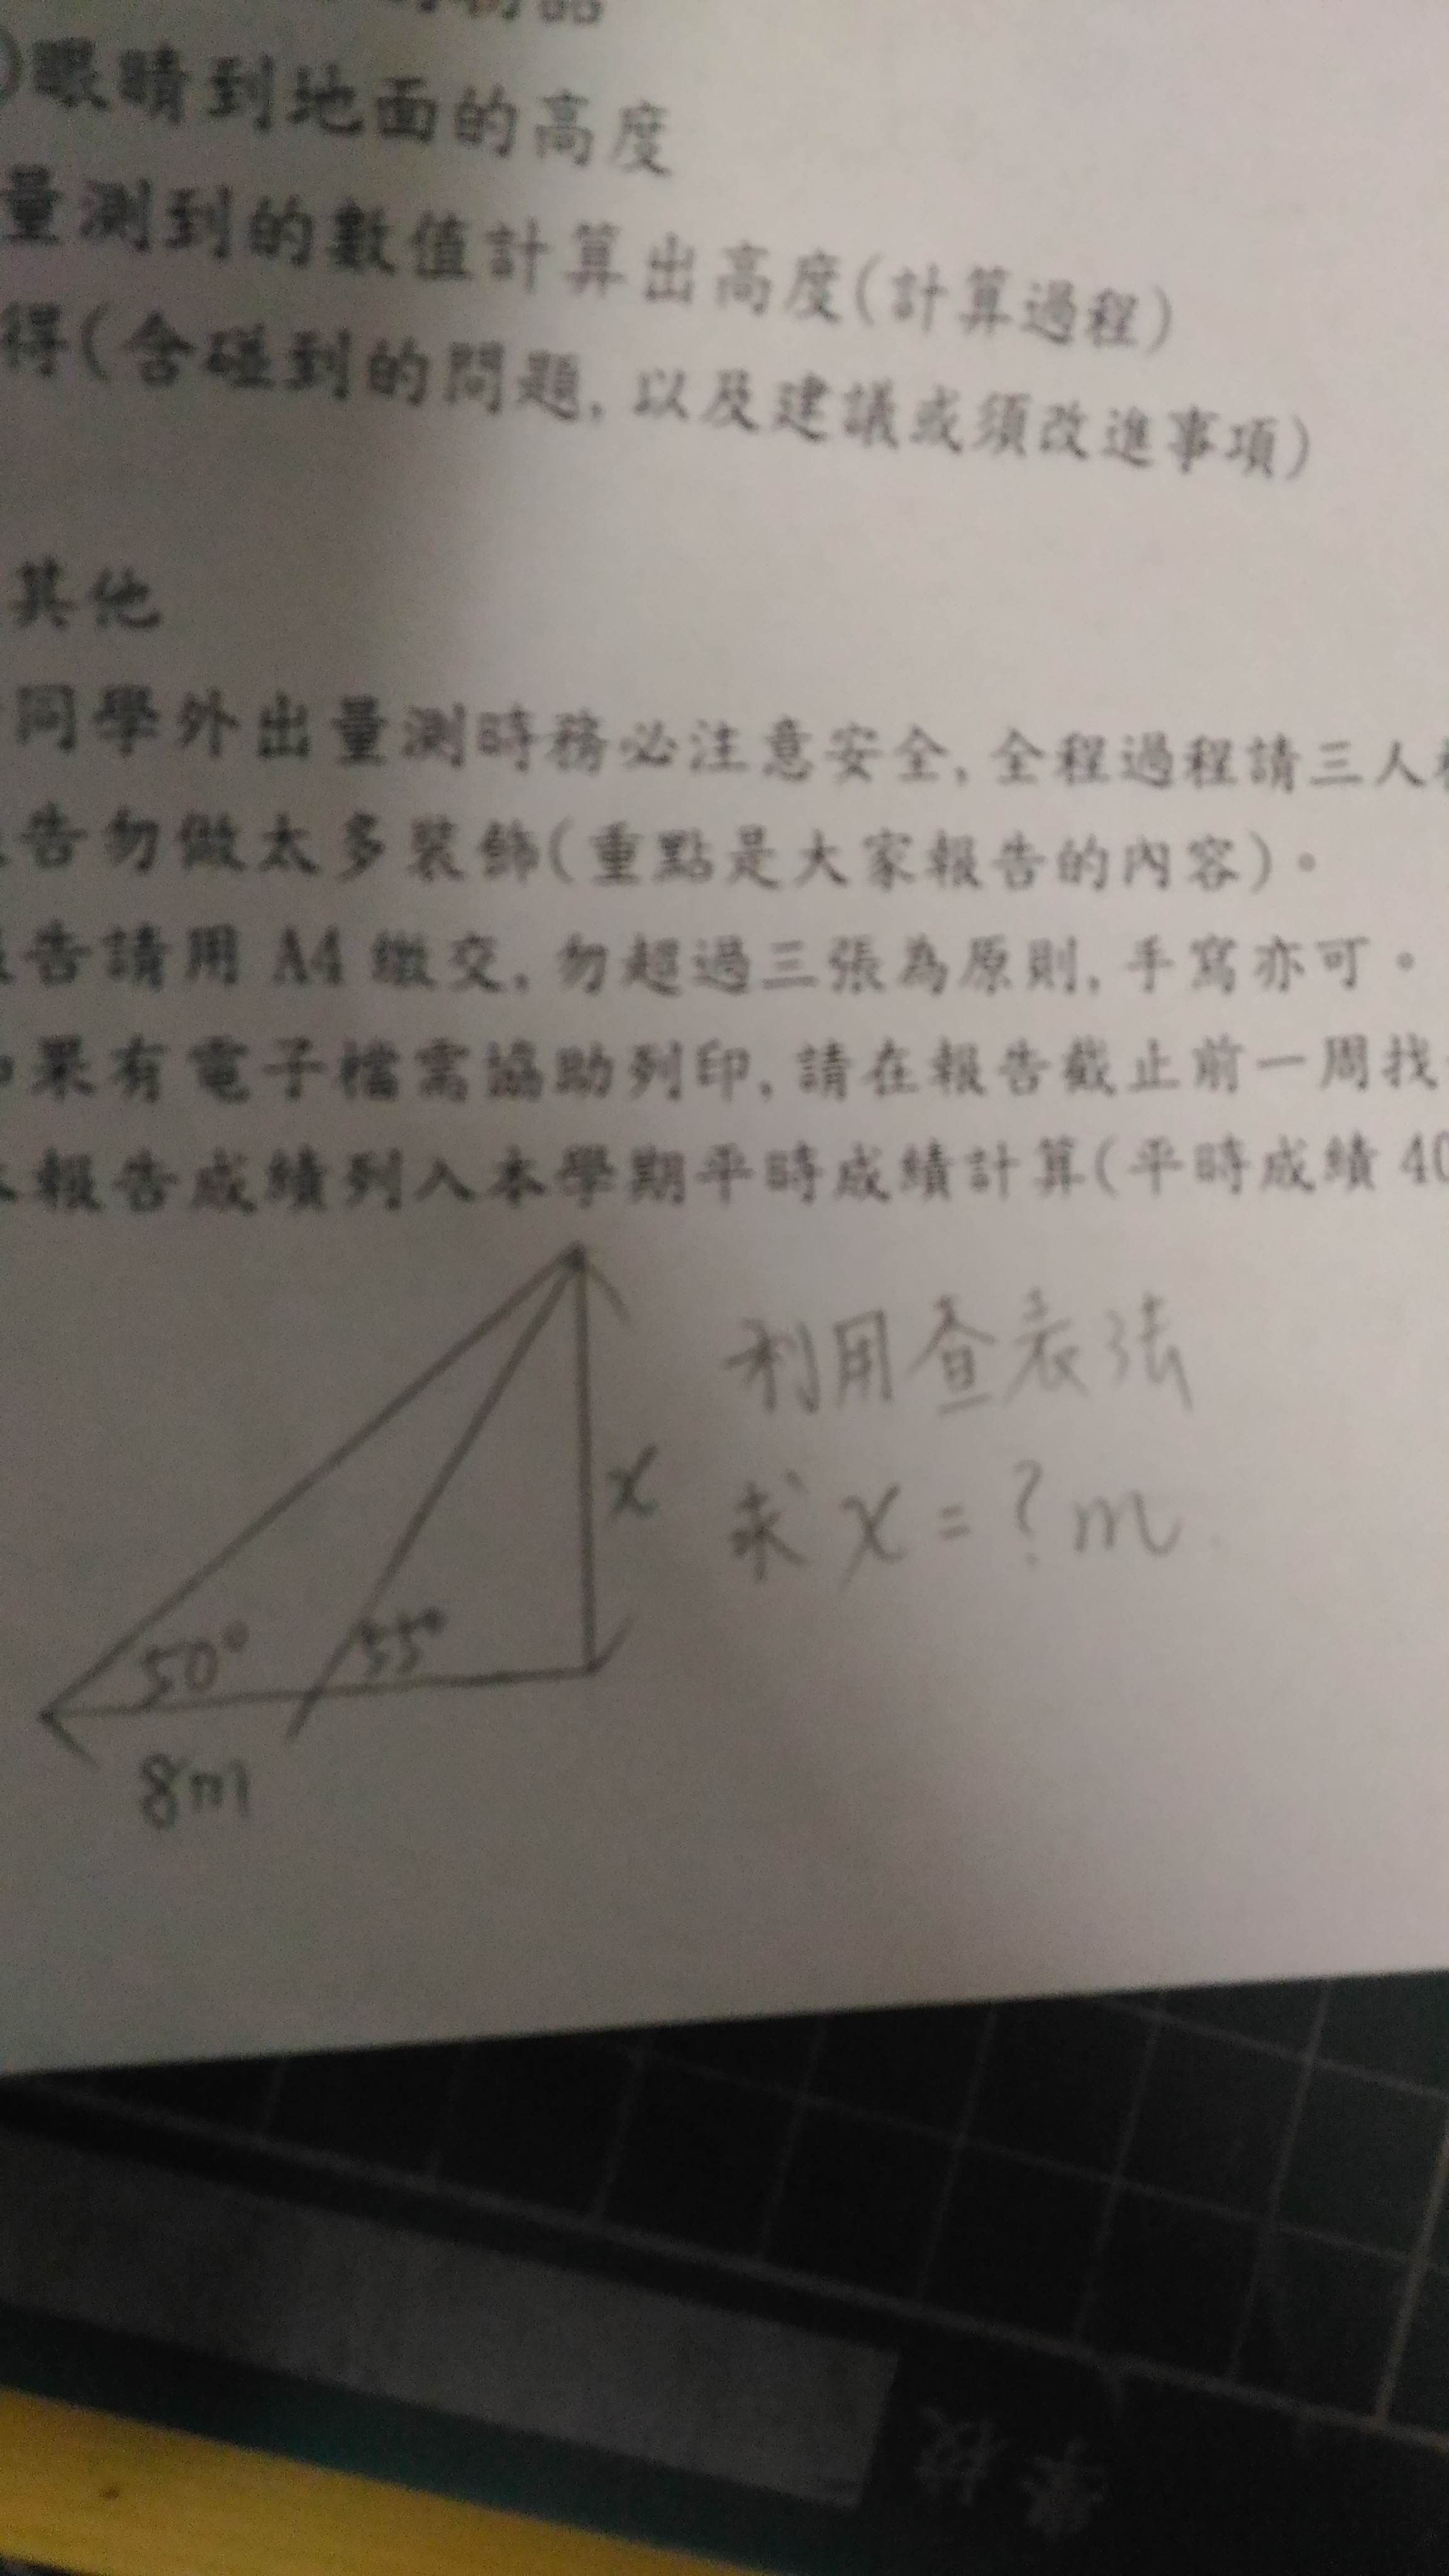 眼睛到地面的高度
量測到的數值計算出高度(計算過程)
得(含碰到的問題,以及建議或須改進事項)
其他
同學外出量測時務必注意安全,全程過程請三人
告勿做太多裝飾(重點是大家報告的內容)。
告請用 A4 繳交,勿超過三張為原則,手寫亦可。
果有電子檔需協助列印,請在報告截止前一周找
報告成績列入本學期平時成績計算(平時成績 40
利用查表法
求 x = ? m
x
50°
55°
8m